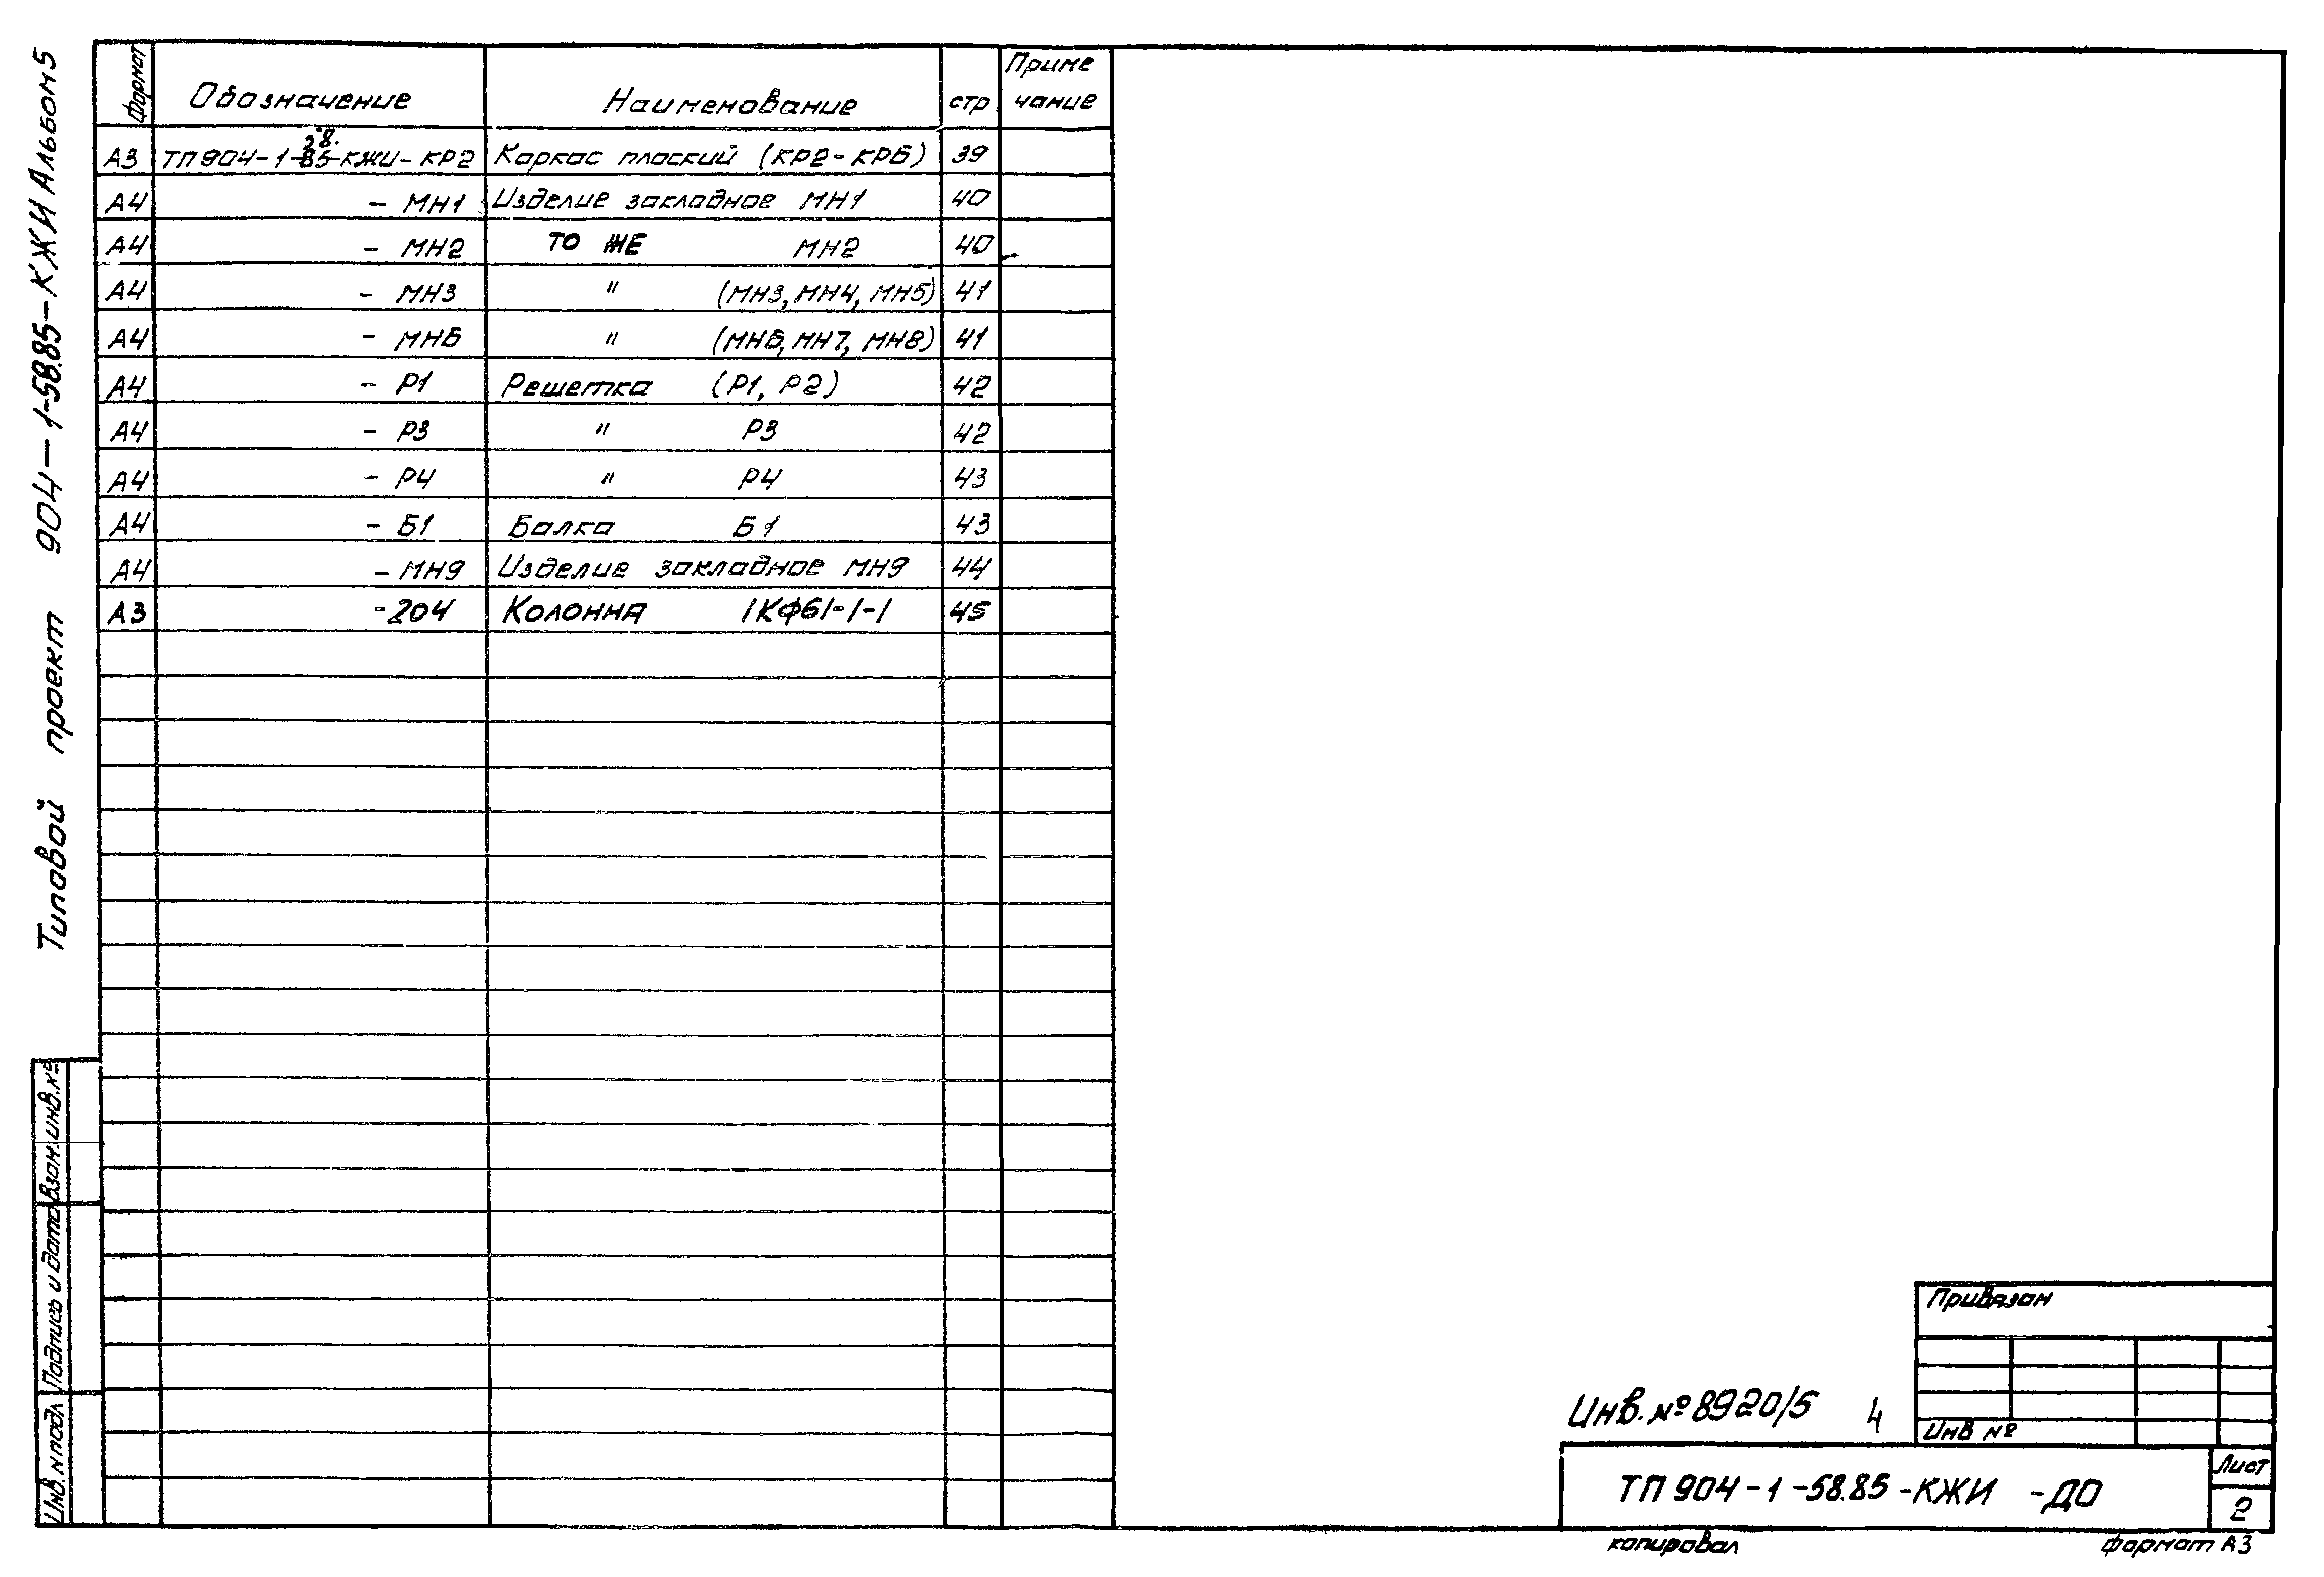 Типовой проект 904-1-58.85-КЖИ Альбом 5
Формат Обозначение Наименование стр. Приме
чание
58.
А3 ТП 904-1-85-КЖИ-КР2 Каркас плоский (КР2-КР6) 39
А4 - МН1 Изделие закладное МН1 40
А4 - МН2 ТО ЖЕ МН2 40
А4 - МН3 " (МН3, МН4, МН5) 41
А4 - МН6 " (МН6, МН7, МН8) 41
А4 - Р1 Решетка (Р1, Р2) 42
А4 - Р3 " Р3 42
А4 - Р4 " Р4 43
А4 - Б1 Балка Б1 43
А4 - МН9 Изделие закладное МН9 44
А3 -204 Колонна 1КФ61-1-1 45
Взам.инв.№
Подпись и дата
Инв.№подл
Привязан
Инв №
Инв.№8920/5 4
ТП 904-1-58.85-КЖИ -ДО
Лист
2
копировал формат А3